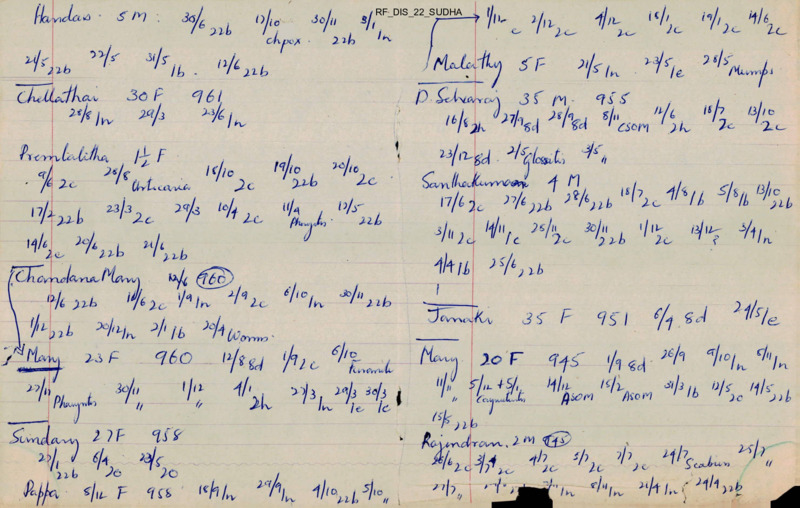 RF_DIS_22_SUDHA
Handas 5 M 30/6 22b 12/10 chpox. 30/11 22b 3/1 1n
21/5 22b 22/5 31/5 1b. 12/6 22b
Chellathai 30 F 961
28/8 1n 29/3 23/6 1n
Premlalitha 1½ F
9/6 2c 28/8 Urticaria 18/10 2c 19/10 22b 20/10 2c
17/2 22b 23/3 2c 29/3 10/4 2c 11/9 Phryngts 12/5 22b
14/6 2c 20/6 22b 21/6 22b
Chandana Mary 12/6 960
12/6 22b 18/6 2c 1/9 1n 2/9 2c 6/10 1n 30/11 22b
1/12 22b 20/12 1n 2/1 1b 20/4 Worms
Mary 23 F 960 12/8 8d 1/9 2c 6/10
27/11 Phryngts 30/11 " 1/12 " 4/1 2h 27/3 1n 29/3 1e 30/3 1c
Sundary 27F 958
27/1 22b 6/4 20 23/5 20
Pappa 5/12 F 958 18/9 1n 29/9 1n 4/10 22b 5/10 "
1/12 c 2/12 2c 4/12 2c 18/1 2c 19/1 2c 14/6 2c
Malathy 5 F 21/5 1n 23/5 1e 28/5 Mumps
D. Selvaraj 35 M. 955
16/8 2h 27/9 8d 28/9 8d 8/11 CSOM 12/6 2h 18/7 2c 13/10 2c
23/12 8d. 2/5 Glossitis 3/5 "
Santhakumar 4 M
17/6 2c 27/6 22b 28/6 22b 18/7 2c 4/8 1b 5/8 1b 13/10 22b
3/11 2c 14/11 1c 25/11 2c 30/11 22b 1/12 2c 13/12 ? 3/4 1n
4/4 1b 25/6 22b
Janaki 35 F 951 6/4 8d 24/5 1e
Mary 20 F 945 1/9 8d 26/9 9/10 1n 5/11 1n
11/11 " 5/12 + 5/1 14/12 ASOM 15/2 ASOM 31/3 1b 12/5 2c 14/5 22b
15/5 22b
Rajendran. 2 M 945
26/6 2c 3/4 2c 4/7 2c 5/7 2c 7/7 2c 24/7 Scabies 25/7 "
27/7 " 8/11 1n 21/4 1n 24/4 22b